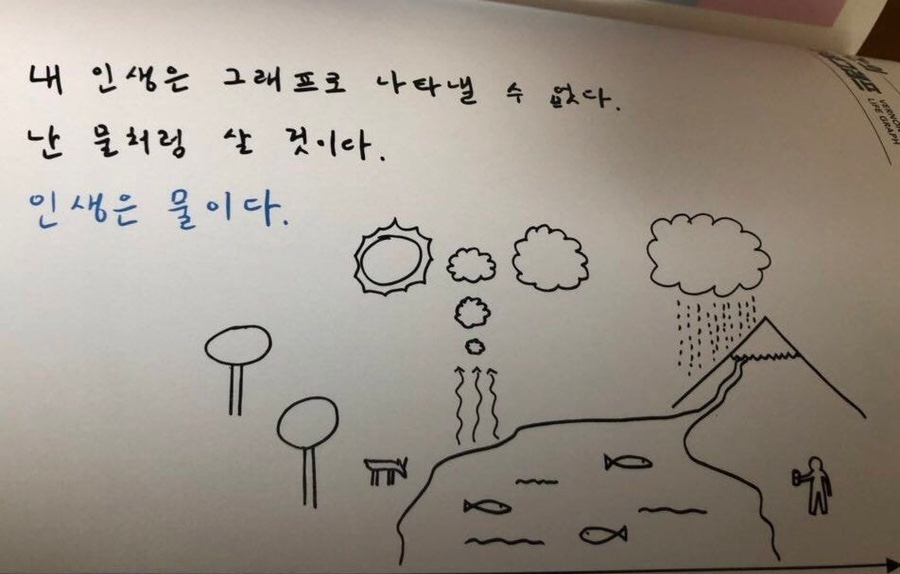 내 인생은 그래프로 나타낼 수 없다.
난 물처럼 살 것이다.
인생은 물이다.
VERNON
LIFE GRAPH